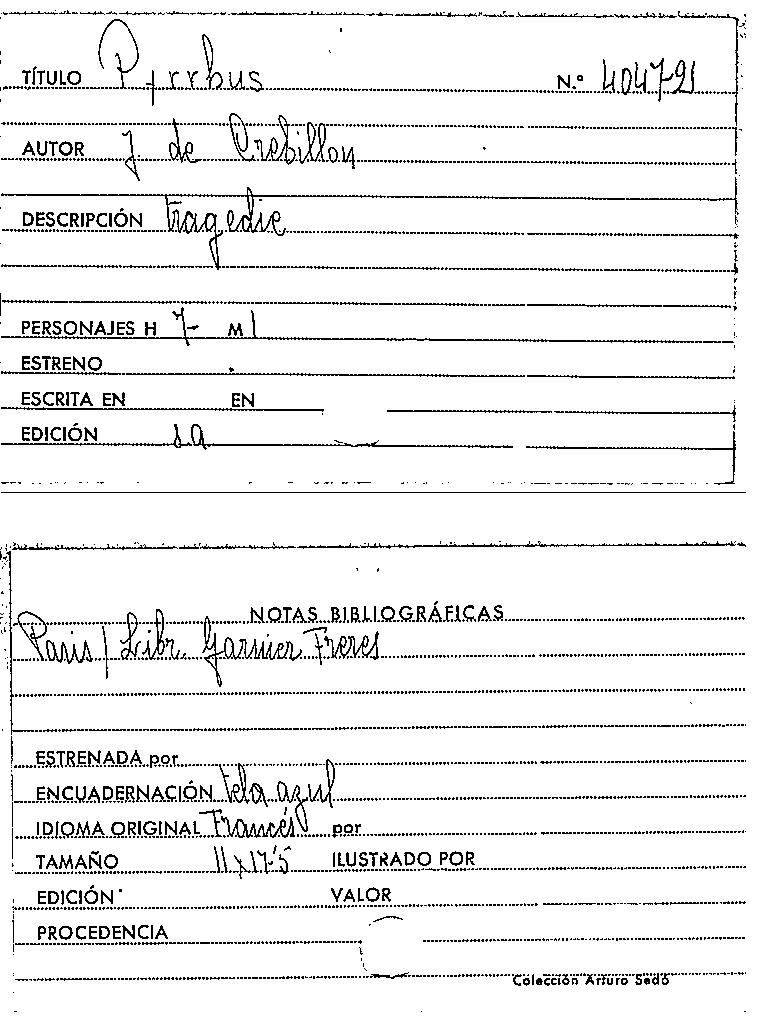 TÍTULO Pyrrhus N.º 40479-21
AUTOR J de Crebillon
DESCRIPCIÓN tragedie
PERSONAJES H 7- M 1
ESTRENO
ESCRITA EN EN
EDICIÓN s.a
NOTAS BIBLIOGRÁFICAS
Paris / Libr. Garnier Freres
ESTRENADA por
ENCUADERNACIÓN tela azul
IDIOMA ORIGINAL Francés por
TAMAÑO 11x17'5 ILUSTRADO POR
EDICIÓN VALOR
PROCEDENCIA
Colección Arturo Sedó